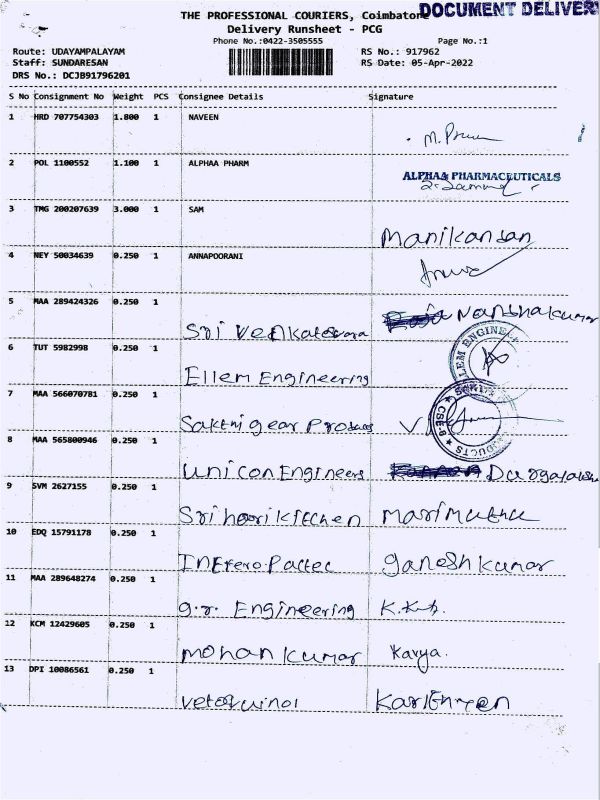 DOCUMENT DELIVER
THE PROFESSIONAL COURIERS, Coimbatore
Delivery Runsheet - PCG
Phone No.:0422-3505555 Page No.:1
Route: UDAYAMPALAYAM RS No.: 917962
Staff: SUNDARESAN RS Date: 05-Apr-2022
DRS No.: DCJB91796201
S No Consignment No Weight PCS Consignee Details Signature
1 HRD 707754303 1.800 1 NAVEEN
2 POL 1100552 1.100 1 ALPHAA PHARM
ALPHAA PHARMACEUTICALS
3 TMG 200207639 3.000 1 SAM
Manikandan
4 NEY 50034639 0.250 1 ANNAPOORANI
5 MAA 289424326 0.250 1
Sri Venkateswara Nandhakumar
6 TUT 5982998 0.250 1
Ellem Engineering
7 MAA 566070781 0.250 1
Sakthi gear Products
8 MAA 565800946 0.250 1
Unicon Engineers
9 SVM 2627155 0.250 1
Sri hoori Kitchen Marimuthu
10 EDQ 15791178 0.250 1
ganesh kumar
11 MAA 289648274 0.250 1
g.r. Engineering
12 KCM 12429605 0.250 1
mohan kumar Kavya.
13 DPI 10086561 0.250 1